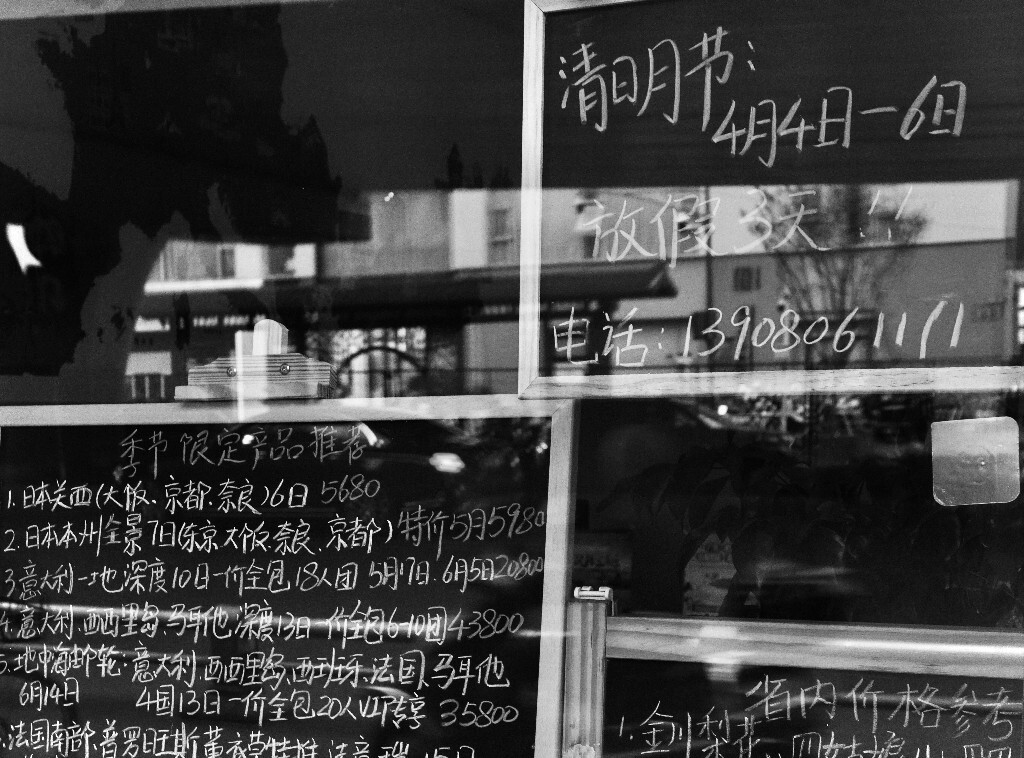 清明节：
4月4日－6日
放假3天！！
电话：13908061111
季节限定产品推荐
1.日本关西(大阪、京都、奈良)6日 5680
2.日本本州全景7日(东京大阪奈良、京都)特价5月5980
3.意大利一地深度10日一价全包18人团 5月17日.6月5日20800
4.意大利.西西里岛.马耳他深度13日一价全包6-10团43800
5.地中海邮轮：意大利.西西里岛.西班牙.法国.马耳他
6月14日 4国13日一价全包20人VIP专享 35800
法国南部.普罗旺斯薰衣草特推 法意瑞 15日
省内价格参考
1.金川梨花 四姑娘山